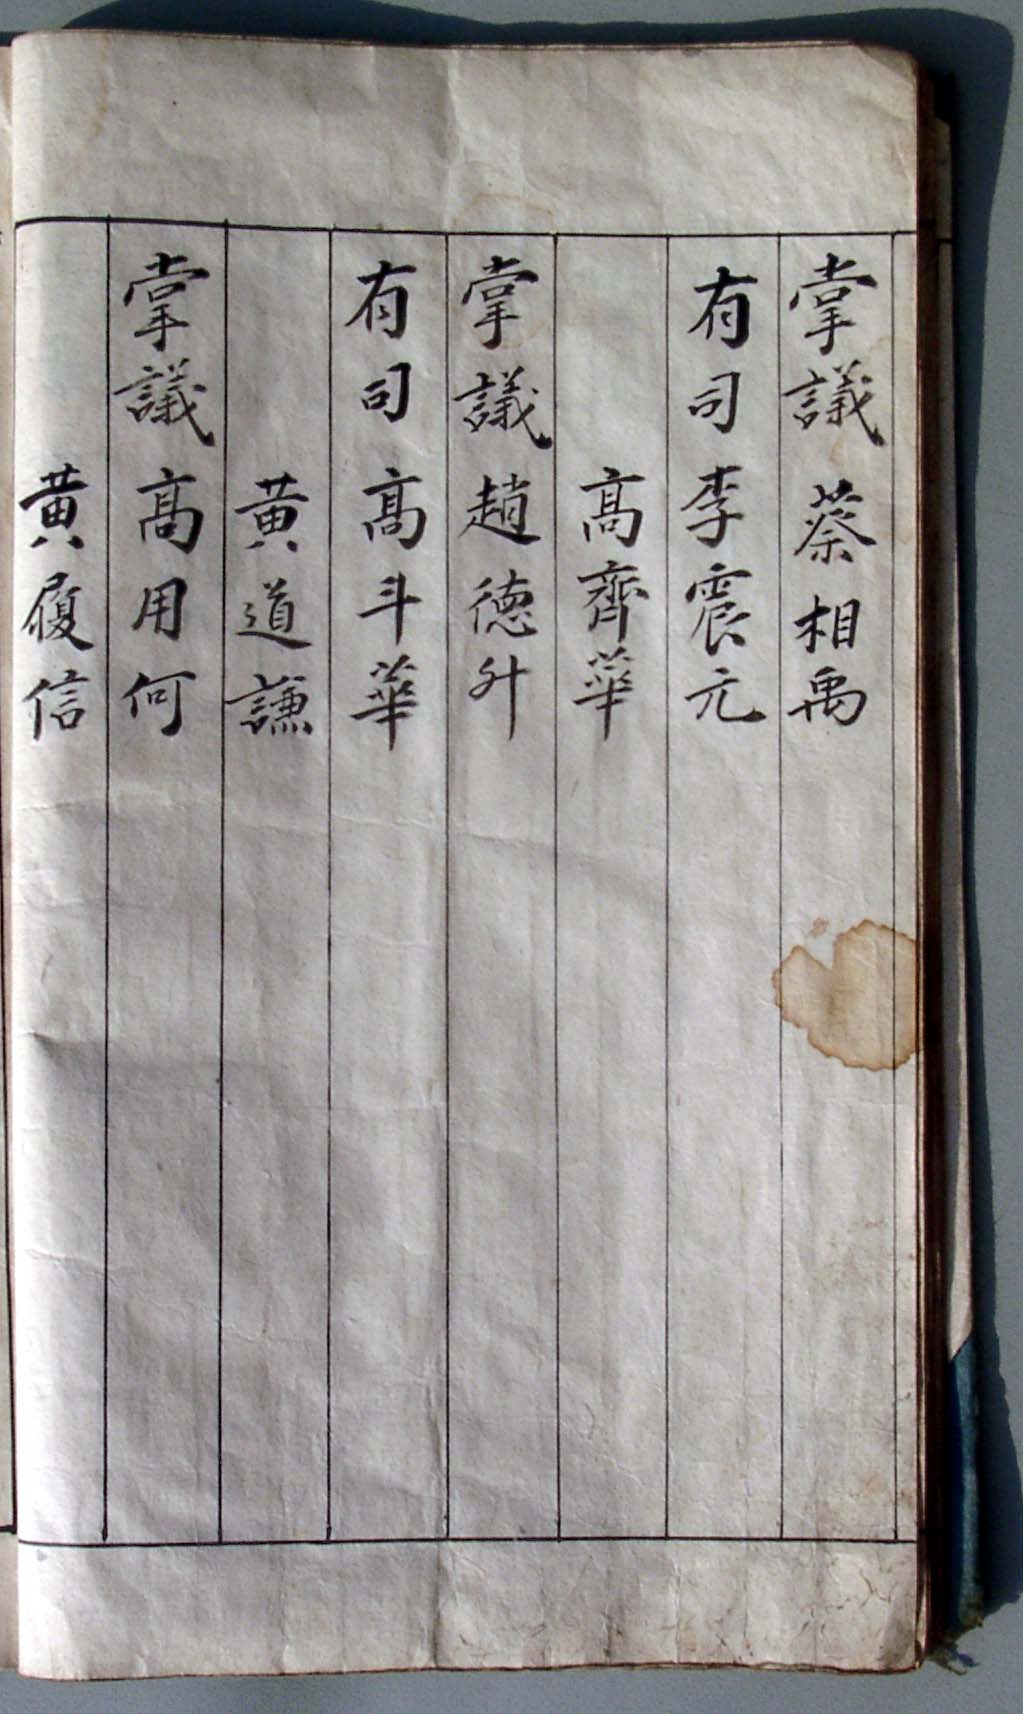 掌議 蔡相禹
有司 李震元
高齊華
掌議 趙德升
有司 高斗華
黃道謙
掌議 高用何
黃履信